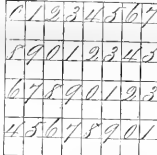 0 1 2 3 4 5 6 7
8 9 0 1 2 3 4 5
6 7 8 9 0 1 2 3
4 5 6 7 8 9 0 1